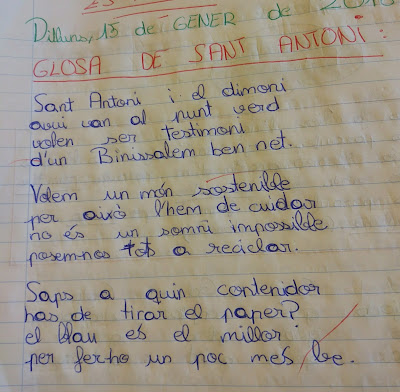 Dilluns, 15 de GENER de 2018
GLOSA DE SANT ANTONI:
Sant Antoni i el dimoni
avui van al punt verd
volen ser testimoni
d'un Binissalem ben net.
Volem un món sostenible
per això l'hem de cuidar
no és un somni impossible
posem-nos tots a reciclar.
Saps a quin contenidor
has de tirar el paper?
el blau és el millor
per fer-ho un poc més be.